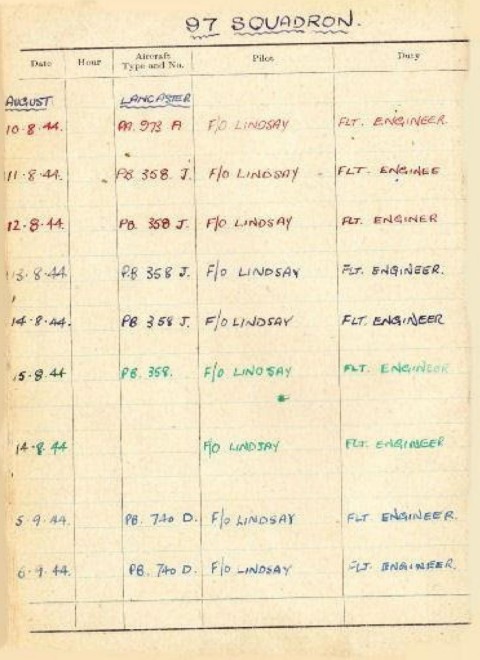 97 SQUADRON.
Date Hour Aircraft Type and No. Pilot Duty
AUGUST LANCASTER
10·8·44. AA. 973 A F/O LINDSAY FLT. ENGINEER.
11·8·44. PB 358 J. F/O LINDSAY FLT. ENGINEE
12·8·44. PB. 358 J. F/O LINDSAY FLT. ENGINER
13·8·44 P.B 358 J. F/O LINDSAY FLT. ENGINEER.
14·8·44. PB 358 J. F/O LINDSAY FLT. ENGINEER
15·8·44 PB. 358. F/O LINDSAY FLT. ENGINEER
14·8·44 F/O LINDSAY FLT. ENGINEER
5·9·44. PB. 740 D. F/O LINDSAY FLT ENGINEER.
6·9·44. PB. 740 D. F/O LINDSAY FLT. ENGINEER.